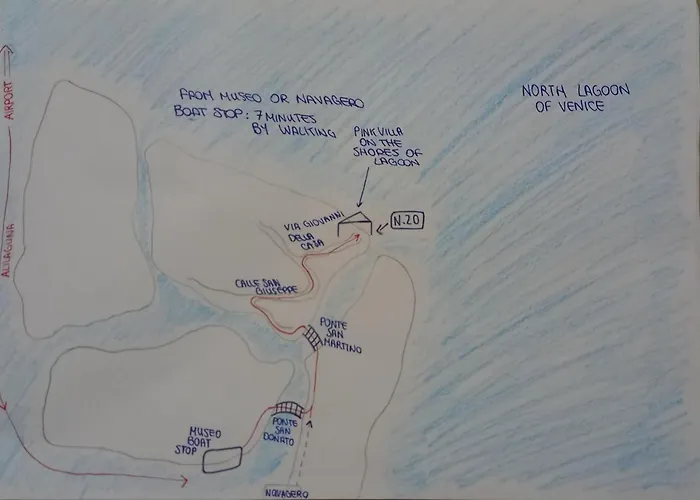 FROM MUSEO OR NAVAGERO
BOAT STOP: 7 MINUTES
BY WALITING
NORTH LAGOON
OF VENICE
PINK VILLA
ON THE
SHORES OF
LAGOON
AIRPORT
ALILAGUNA
VIA GIOVANNI
DELLA
CASA
N.20
CALLE SAN
GIUSEPPE
PONTE
SAN
MARTINO
MUSEO
BOAT
STOP
PONTE
SAN
DONATO
NAVAGERO